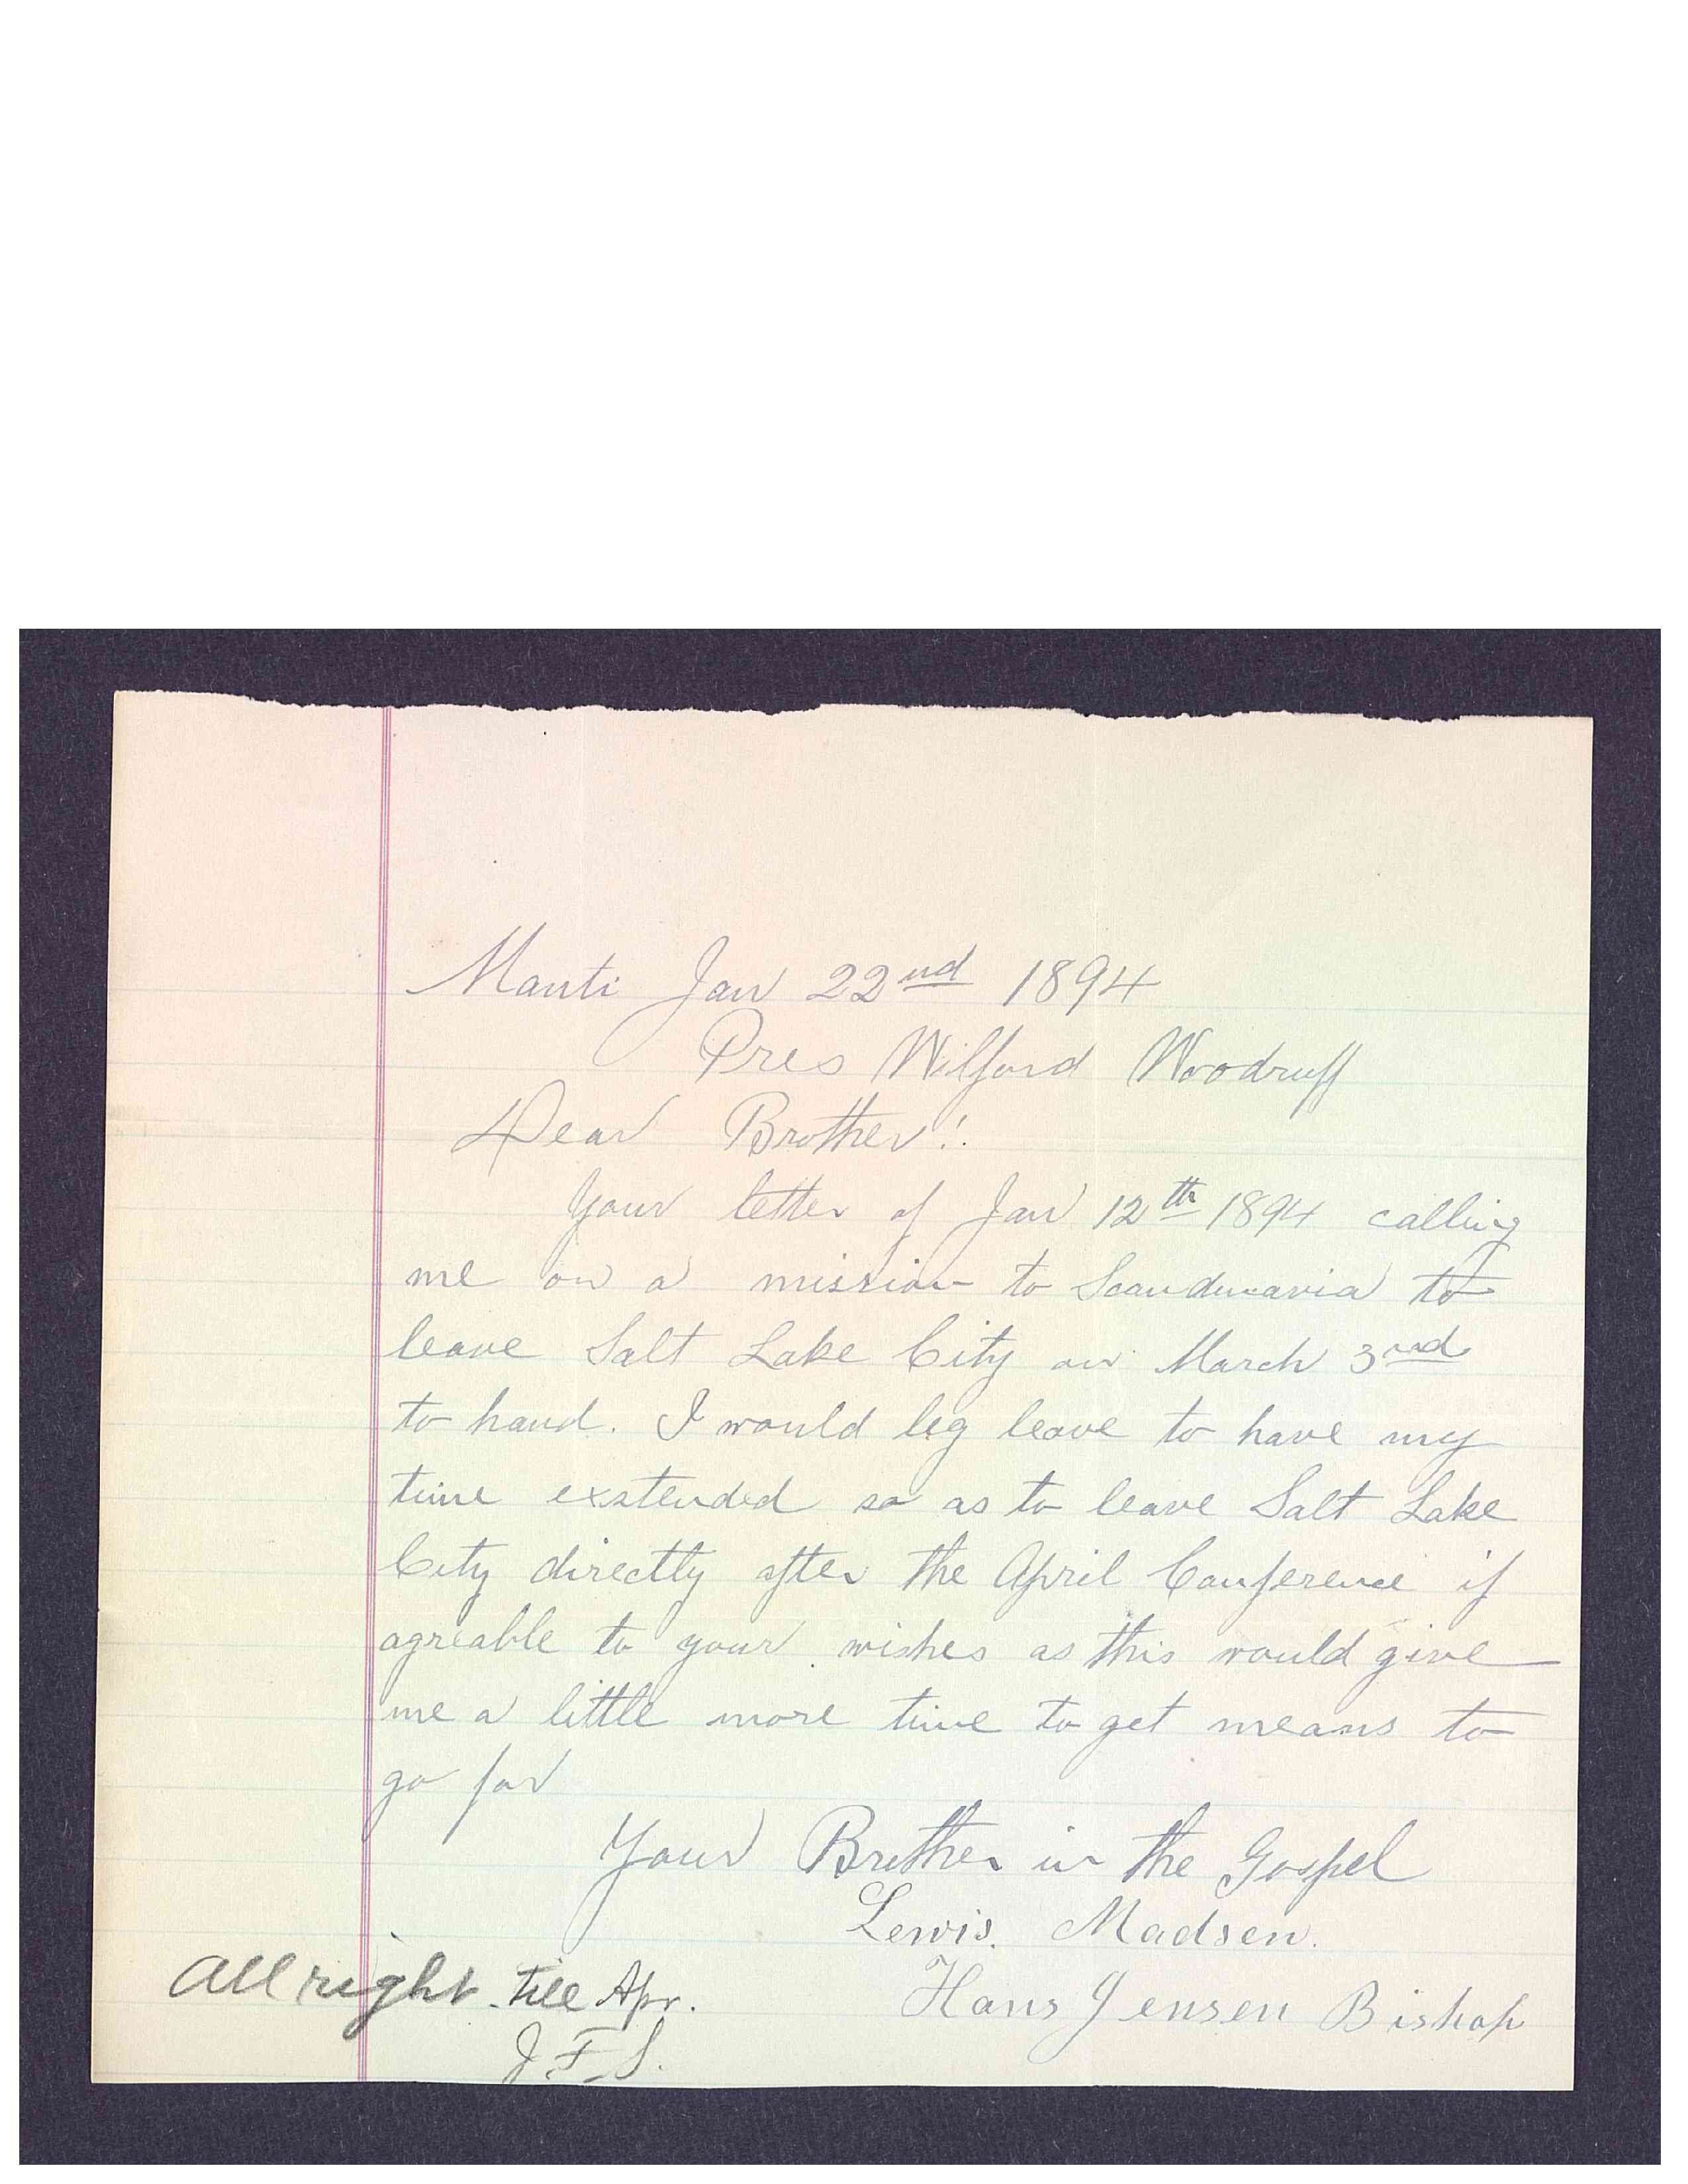 Manti Jan 22nd 1894
Pres Wilford Woodruff
Dear Brother!
Your letter of Jan 12th 1894 calling
me on a mission to Scandinavia to
leave Salt Lake City on March 3rd
to hand. I would beg leave to have my
time exstended so as to leave Salt Lake
City directly after the April Conference if
agreable to your wishes as this would give
me a little more time to get means to
go for
Your Brother in the Gospel
Lewis. Madsen.
Hans Jensen Bishop
All right till Apr.
J. F. S.